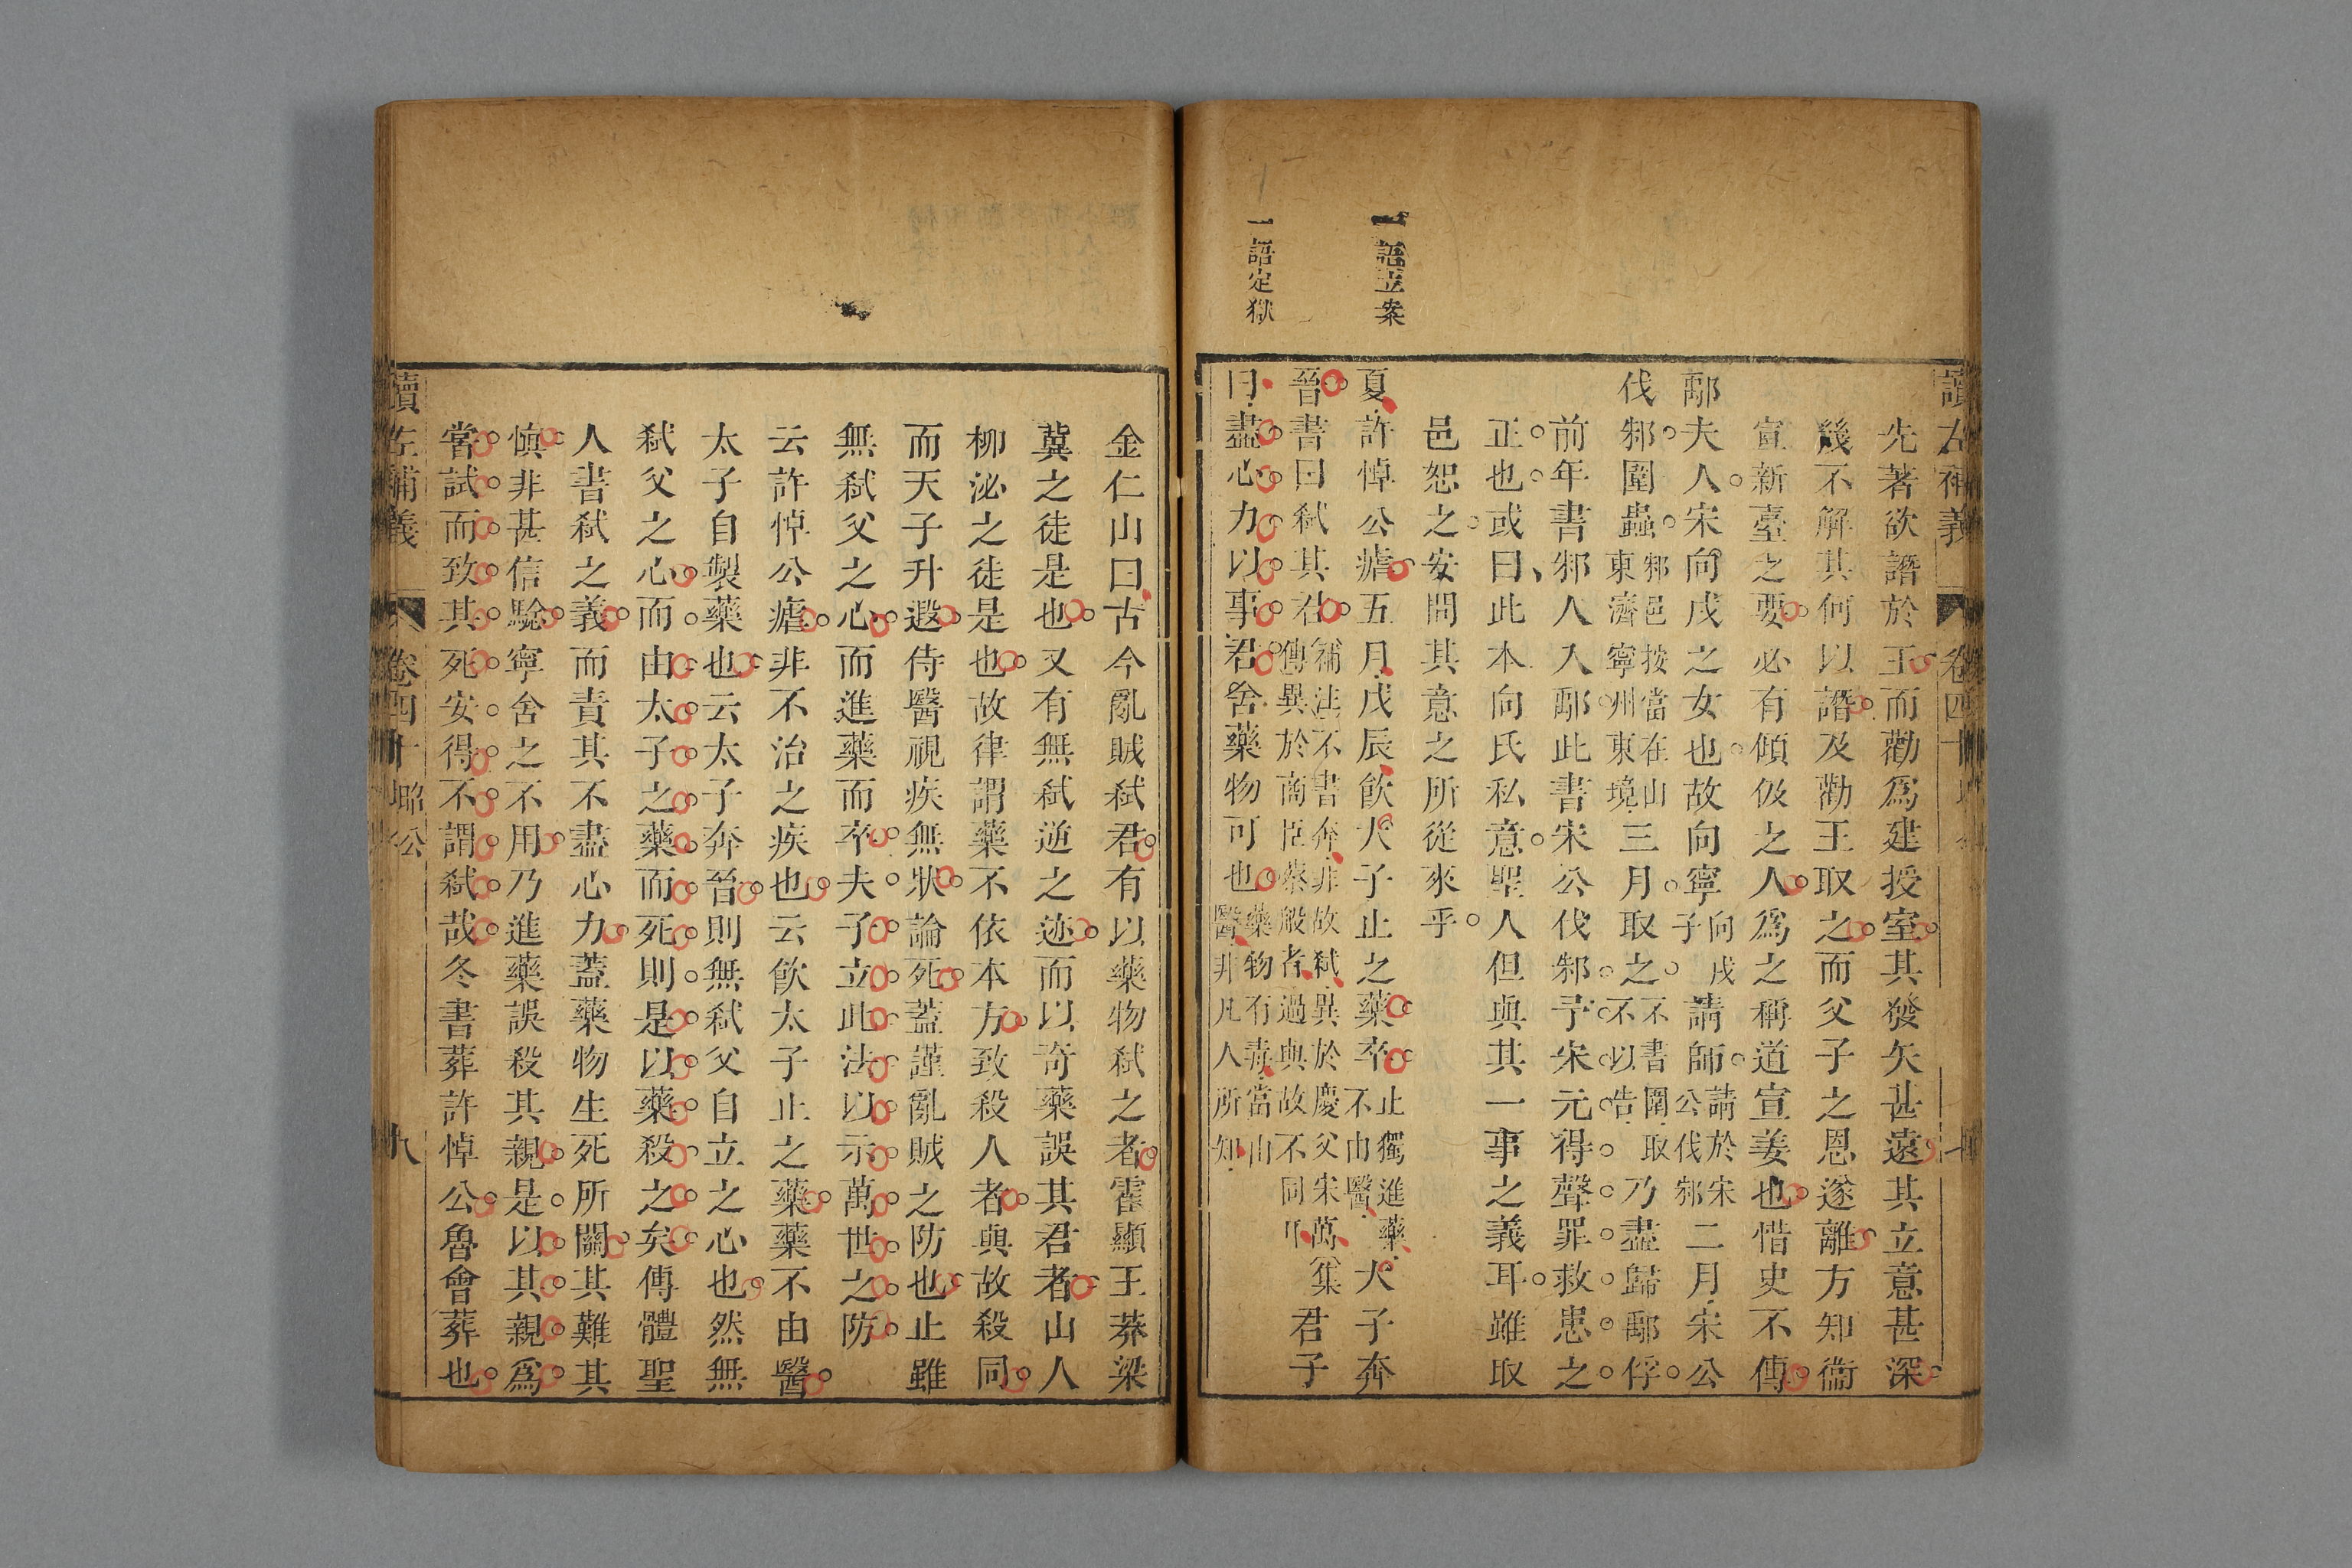 讀左補義 卷四十 昭公
先著欲譖於王而勸爲建授室其發矢甚遠其立意甚深
幾不解其何以譖及勸王取之而父子之恩遂離方知衞
宣新臺之要必有傾伋之人爲之稱道宣姜也惜史不傳
鄅夫人宋向戌之女也故向寧向戌子請師請於宋公伐邾二月宋公
伐邾圍蟲邾邑按當在山東濟寧州東境三月取之不書圍取不以告乃盡歸鄅俘
前年書邾人入鄅此書宋公伐邾予宋元得聲罪救患之
正也或曰此本向氏私意聖人但與其一事之義耳雖取
邑恕之安問其意之所從來乎
一語立案
夏許悼公瘧五月戊辰飲大子止之藥卒止獨進藥不由醫大子奔
晉書曰弒其君補注不書奔非故弒異於慶父宋萬集傳異於商臣蔡般者過與故不同爾君子
一語定獄
曰盡心力以事君舍藥物可也藥物有毒當由醫非凡人所知
金仁山曰古今亂賊弒君有以藥物弒之者霍顯王莽梁
冀之徒是也又有無弒逆之迹而以奇藥誤其君者山人
柳泌之徒是也故律謂藥不依本方致殺人者與故殺同
而天子升遐侍醫視疾無狀論死蓋謹亂賊之防也止雖
無弒父之心而進藥而卒夫子立此法以示萬世之防
云許悼公瘧非不治之疾也云飲太子止之藥藥不由醫
太子自製藥也云太子奔晉則無弒父自立之心也然無
弒父之心而由太子之藥而死則是以藥殺之矣傳體聖
人書弒之義而責其不盡心力蓋藥物生死所關其難其
慎非甚信驗寧舍之不用乃進藥誤殺其親是以其親爲
嘗試而致其死安得不謂弒哉冬書葬許悼公魯會葬也
讀左補義 卷四十 昭公 九